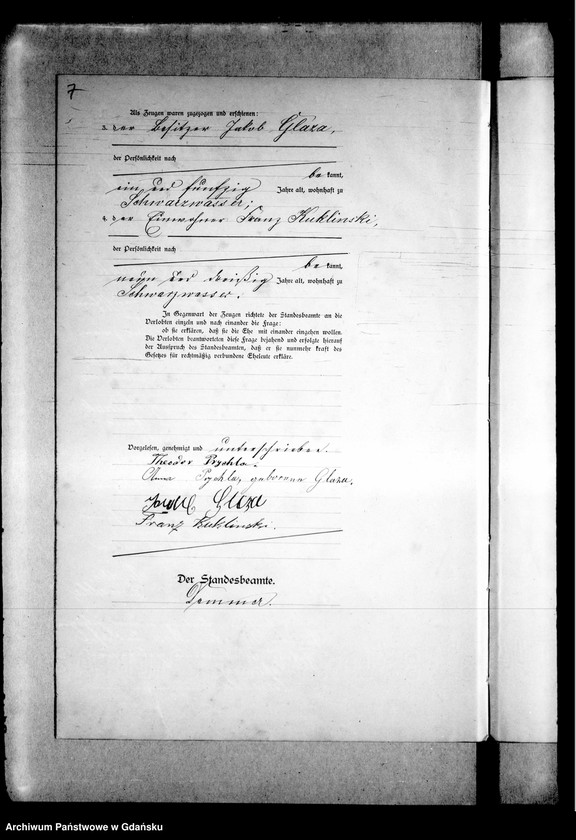 7
Als Zeugen waren zugezogen und erschienen:
der Besitzer Jakob Glaza,
der Persönlichkeit nach
be kannt,
ein und fünfzig Jahre alt, wohnhaft zu
Schwarzwasser;
der Einwohner Franz Kuklinski,
der Persönlichkeit nach
be kannt,
neun und dreißig Jahre alt, wohnhaft zu
Schwarzwasser.
In Gegenwart der Zeugen richtete der Standesbeamte an die
Verlobten einzeln und nach einander die Frage:
ob sie erklären, daß sie die Ehe mit einander eingehen wollen.
Die Verlobten beantworteten diese Frage bejahend und erfolgte hierauf
der Ausspruch des Standesbeamten, daß er sie nunmehr kraft des
Gesetzes für rechtmäßig verbundene Eheleute erkläre.
Vorgelesen, genehmigt und unterschrieben.
Theodor Prychla.
Anna geborene Glaza.
Jacob Glaza
Franz Kuklinski.
Der Standesbeamte.
Demmer.
Archiwum Państwowe w Gdańsku